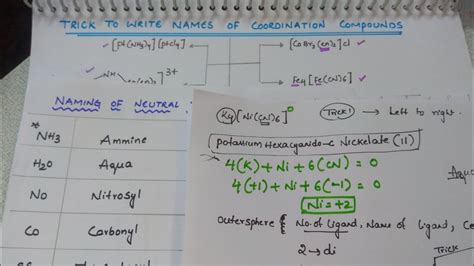 TRICK TO WRITE NAMES OF COORDINATION COMPOUNDS
[Pt(NH3)4][PtCl4]
[CoBr2(en)2]Cl
3+
Fe4[Fe(CN)6]3
NAMING OF NEUTRAL
NH3 Ammine
H2O Aqua
NO Nitrosyl
CO Carbonyl
K4[Ni(CN)6]0
Trick1 → Left to right.
Potassium Hexacyanido-C Nickelate (II)
4(K) + Ni + 6(CN) = 0
4(+1) + Ni + 6(-1) = 0
Ni = +2
Outersphere { No. of Ligand, Name of Ligand, Ce
2 → di
Trick
Aqua